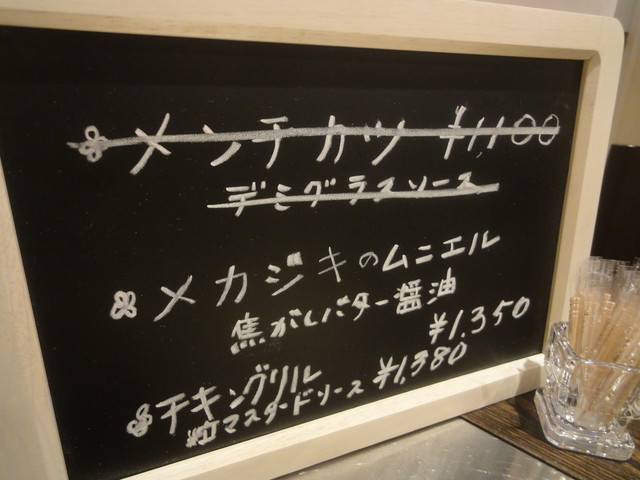 メンチカツ ¥1,100
デミグラスソース
メカジキのムニエル
焦がしバター醤油
¥1,350
チキングリル
粒マスタードソース ¥1,380